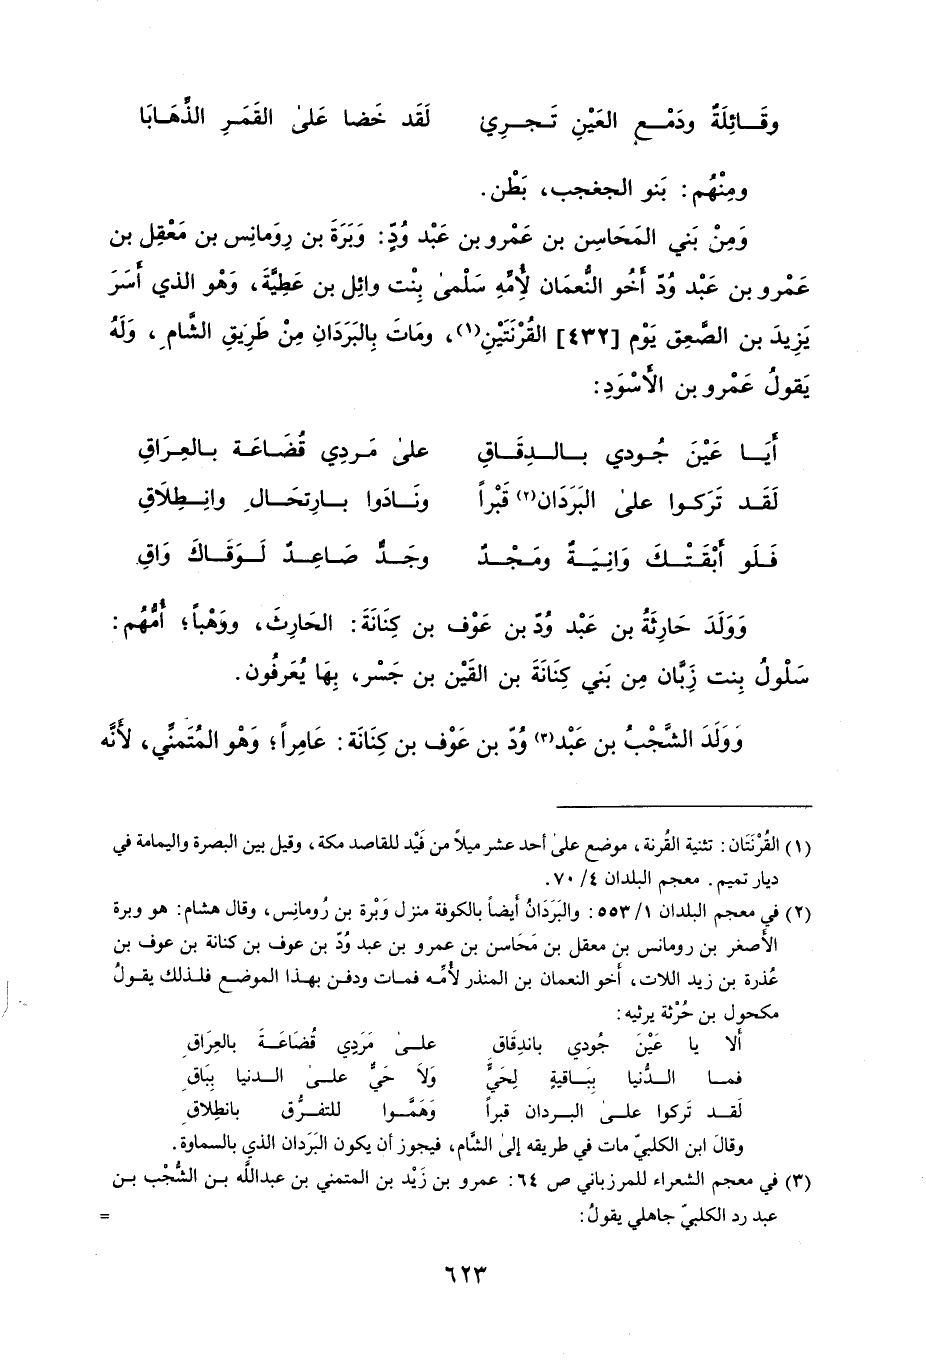 وقَـائِلَةً ودَمْـعِ العَيْنِ تَـجـرِي لَقَد خَضا عَلىٰ القَمَرِ الذَّهَابَا
ومِنْهُم: بَنو الجعجب، بَطْن.
وَمِنْ بَني المَحَاسِن بن عَمْرو بن عَبْد وُدٍّ: وَبَرَةَ بن رومانِس بن مَعْقِل بن
عَمْرو بن عَبْد وُدّ أخُو النُّعمَان لأُمِّهِ سَلْمىٰ بِنْت وائِل بن عَطِيَّةَ، وَهْو الذي أسَرَ
يَزِيدَ بن الصَّعِق يَوْم [٤٣٢] القُرْنَتَيْنِ(١)، ومَاتَ بِالبَرَدَانِ مِنْ طَرِيقِ الشَّامِ، ولَهُ
يَقولُ عَمْرو بن الأَسْوَدِ:
أيَـا عَيْنَ جُـودي بـالـدِقَـاقِ علىٰ مَـردِي قُضَـاعَـة بـالعِـرَاقِ
لَقَـد تَرَكـوا علىٰ البَرَدَان(٢) قَبْراً ونَـادَوا بـارتِحَـالٍ وانـطِلَاقِ
فَـلَو أبْقَتْـكَ وَانِيَـةٌ ومَـجْـدٌ وجَـدٌّ صَاعِـدٌ لَـوَقَـاكَ وَاقِ
وَوَلَدَ حَارِثَةُ بن عَبْد وُدّ بن عَوْف بن كِنَانَةَ: الحَارِثَ، ووَهْباً؛ أُمُّهُم:
سَلْولُ بِنت زِبَّان مِن بَني كِنَانَةَ بن القَيْن بن جَسْر، بِهَا يُعَرفُون.
وَوَلَدَ الشَّجْبُ بن عَبْد(٣) وُدّ بن عَوْف بن كِنَانَة: عَامِراً؛ وَهْو المُتَمنِّي، لأنَّه
(١) القُرْنَتَان: تثنية القُرنة، موضع علىٰ أحد عشر ميلاً من فَيْد للقاصد مكة، وقيل بين البصرة واليمامة في
ديار تميم. معجم البلدان ٤/ ٧٠.
(٢) في معجم البلدان ١/ ٥٥٣: والبَرَدَانُ أيضاً بالكوفة منزل وَبْرة بن رُومانِس، وقال هشام: هو وبرة
الأصغر بن رومانس بن معقل بن مَحَاسن بن عمرو بن عبد وُدّ بن عوف بن كنانة بن عوف بن
عُذرة بن زيد اللات، أخو النعمان بن المنذر لأُمِّه فمات ودفن بهذا الموضع فلذلك يقولُ
مكحول بن حُرْثة يرثيه:
ألا يا عَيْنَ جُودي باندِفَاق علىٰ مَرَدِي قُضَاعَـةَ بالعِرَاقِ
فمـا الـدُّنيا بِبَـاقيةٍ لِحَيٍّ وَلَا حَيٌّ علىٰ الـدنيا بِبَاقِ
لَقَد تَركوا علىٰ البـردان قبراً وَهَمَّـوا للتفـرُّق بانطِلاقِ
وقالَ ابن الكلبيّ مات في طريقه إلىٰ الشَّام، فيجوز أن يكون البَرَدان الذي بالسماوة.
(٣) في معجم الشعراء للمرزباني ص ٦٤: عمرو بن زَيْد بن المتمني بن عبدالله بن الشُّجْب بن
عبد رد الكلبيّ جاهلي يقولُ: =
٦٢٣